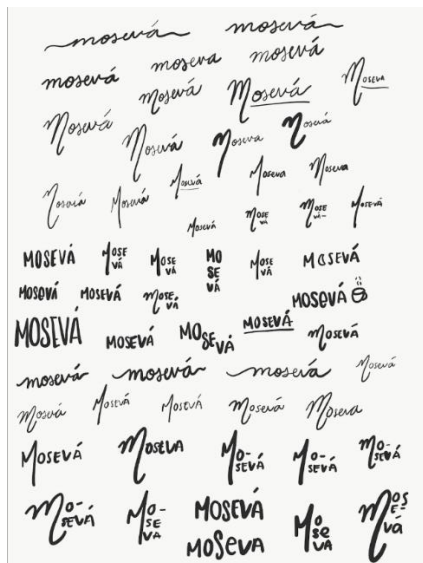 mosevá mosevá
mosevá moseva mosevá
mosevá Mosevá Moseva
Mosevá Mosevá Moseva Mosevá
Mosevá Moseva Moseva
Mosevá Mosevá
Mosevá MOSE VÁ MOSE VÁ MOSEVÁ
MOSEVÁ MOSE VÁ MOSE VÁ MO SE VÁ MOSE VÁ MOSEVÁ
MOSEVÁ MOSEVÁ MOSE VÁ MOSEVÁ
MOSEVÁ MOSEVÁ MOSEVÁ MOSEVÁ MOSEVÁ
mosevá mosevá mosevá Mosevá
Mosevá Mosevá Mosevá Mosevá Moseva
MOSEVÁ MOSEVA MO-SEVÁ MO-SEVÁ MO-SEVÁ
MO-SEVÁ MO-SE VA MOSEVÁ MO SE VA MOSE-VÁ
MOSeVA